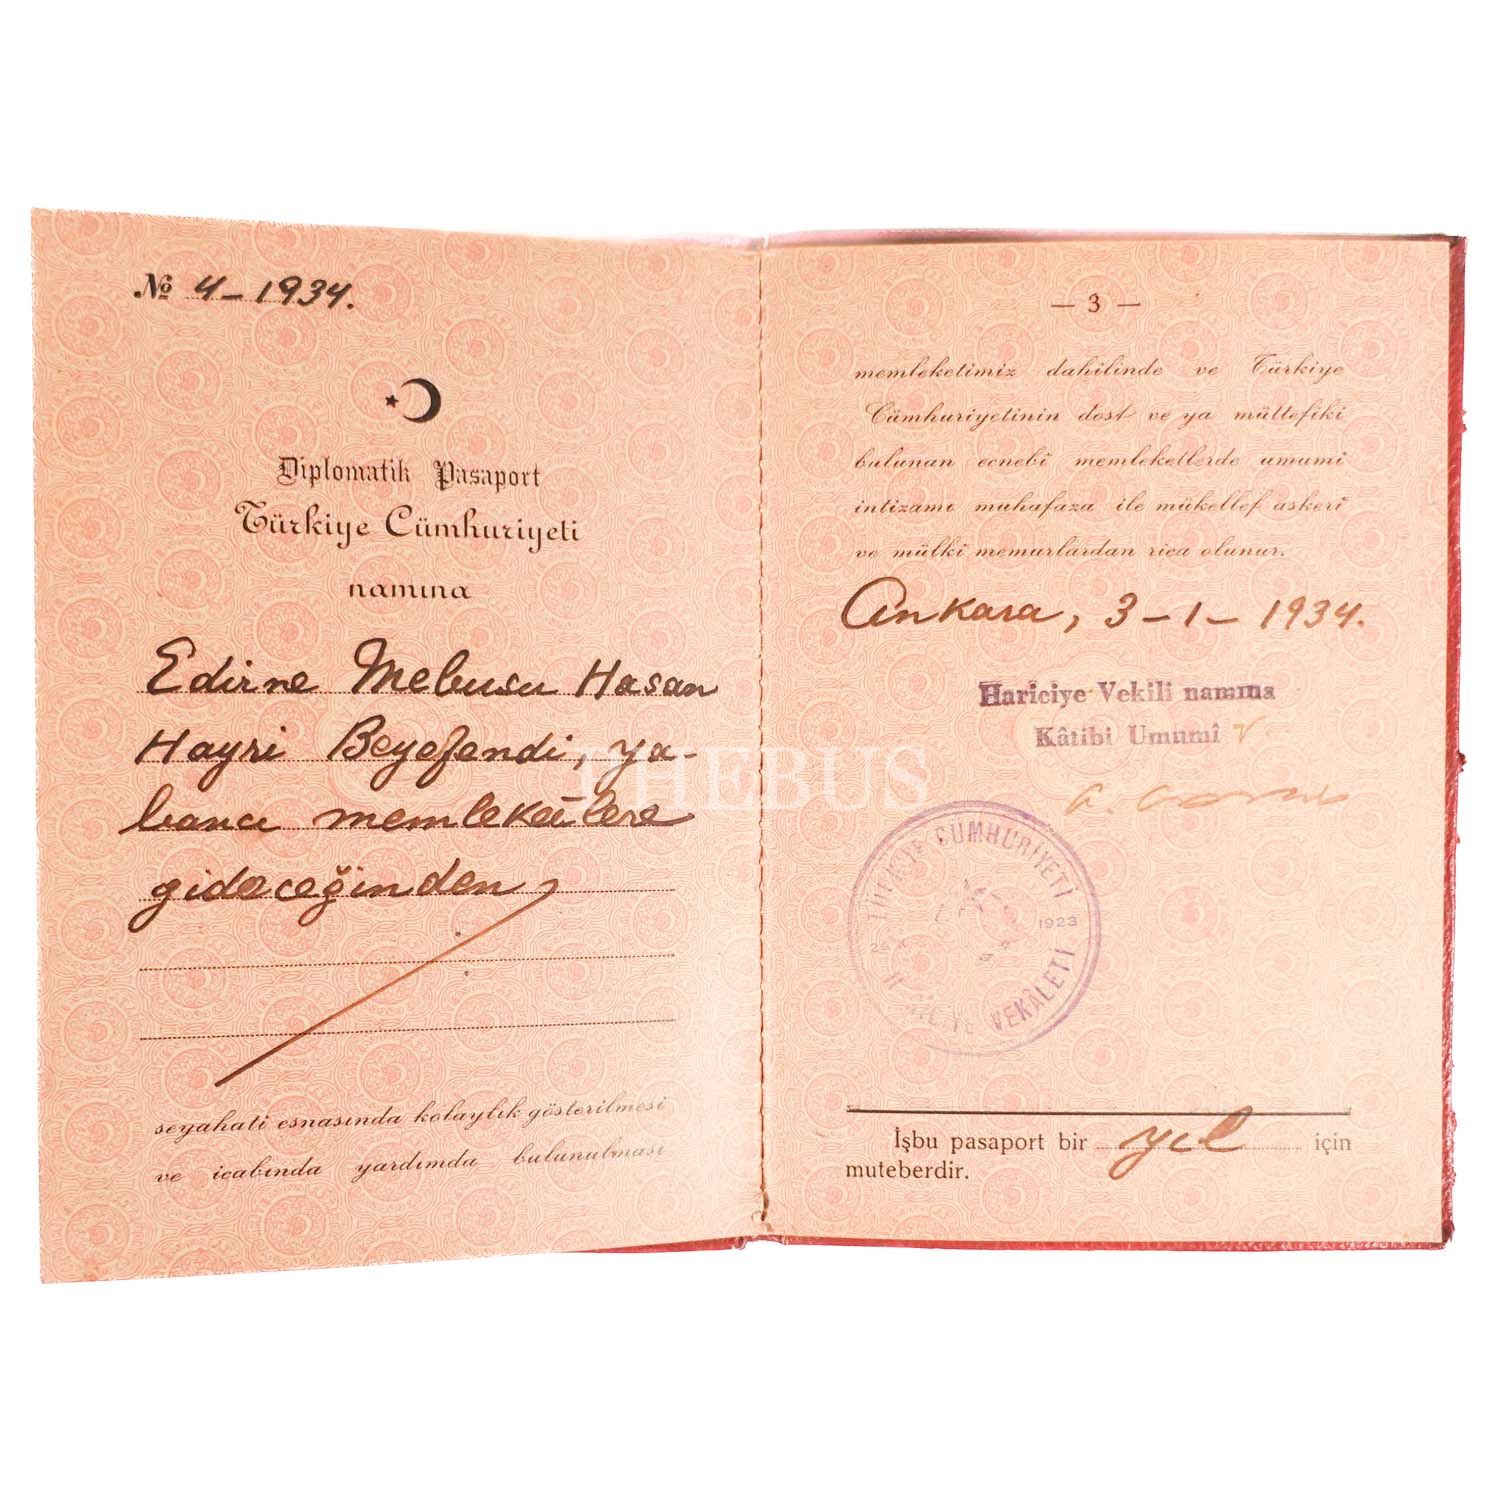 № 4-1934.
Diplomatik Pasaport
Türkiye Cümhuriyeti
namına
Edirne Mebusu Hasan
Hayri Beyefendi, ya-
bancı memleketlere
gideceğinden,
seyahati esnasında kolaylık gösterilmesi
ve icabında yardımda bulunulması
— 3 —
memleketimiz dahilinde ve Türkiye
Cümhuriyetinin dost ve ya müttefiki
bulunan ecnebî memleketlerde umumî
intizamı muhafaza ile mükellef askerî
ve mülkî memurlardan rica olunur.
Ankara, 3-1-1934.
Hariciye Vekili namına
Kâtibi Umumî
TÜRKİYE CÜMHURİYETİ
1923
HARİCİYE VEKÂLETİ
İşbu pasaport bir yıl için
muteberdir.
THEBUS